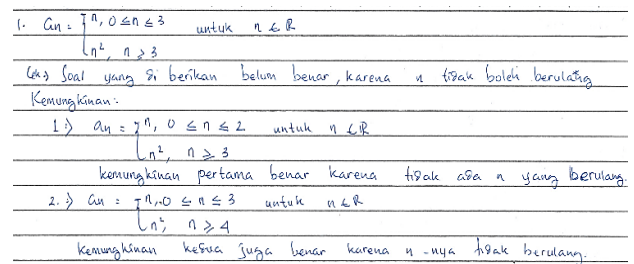 1. an = { n, 0 ≤ n ≤ 3 untuk n ∈ R
n², n ≥ 3
Soal yang di berikan belum benar, karena n tidak boleh berulang
Kemungkinan:
1.) an = { n, 0 ≤ n ≤ 2 untuk n ∈ R
n², n ≥ 3
kemungkinan pertama benar karena tidak ada n yang berulang.
2.) an = { n, 0 ≤ n ≤ 3 untuk n ∈ R
n², n ≥ 4
Kemungkinan kedua juga benar karena n -nya tidak berulang.